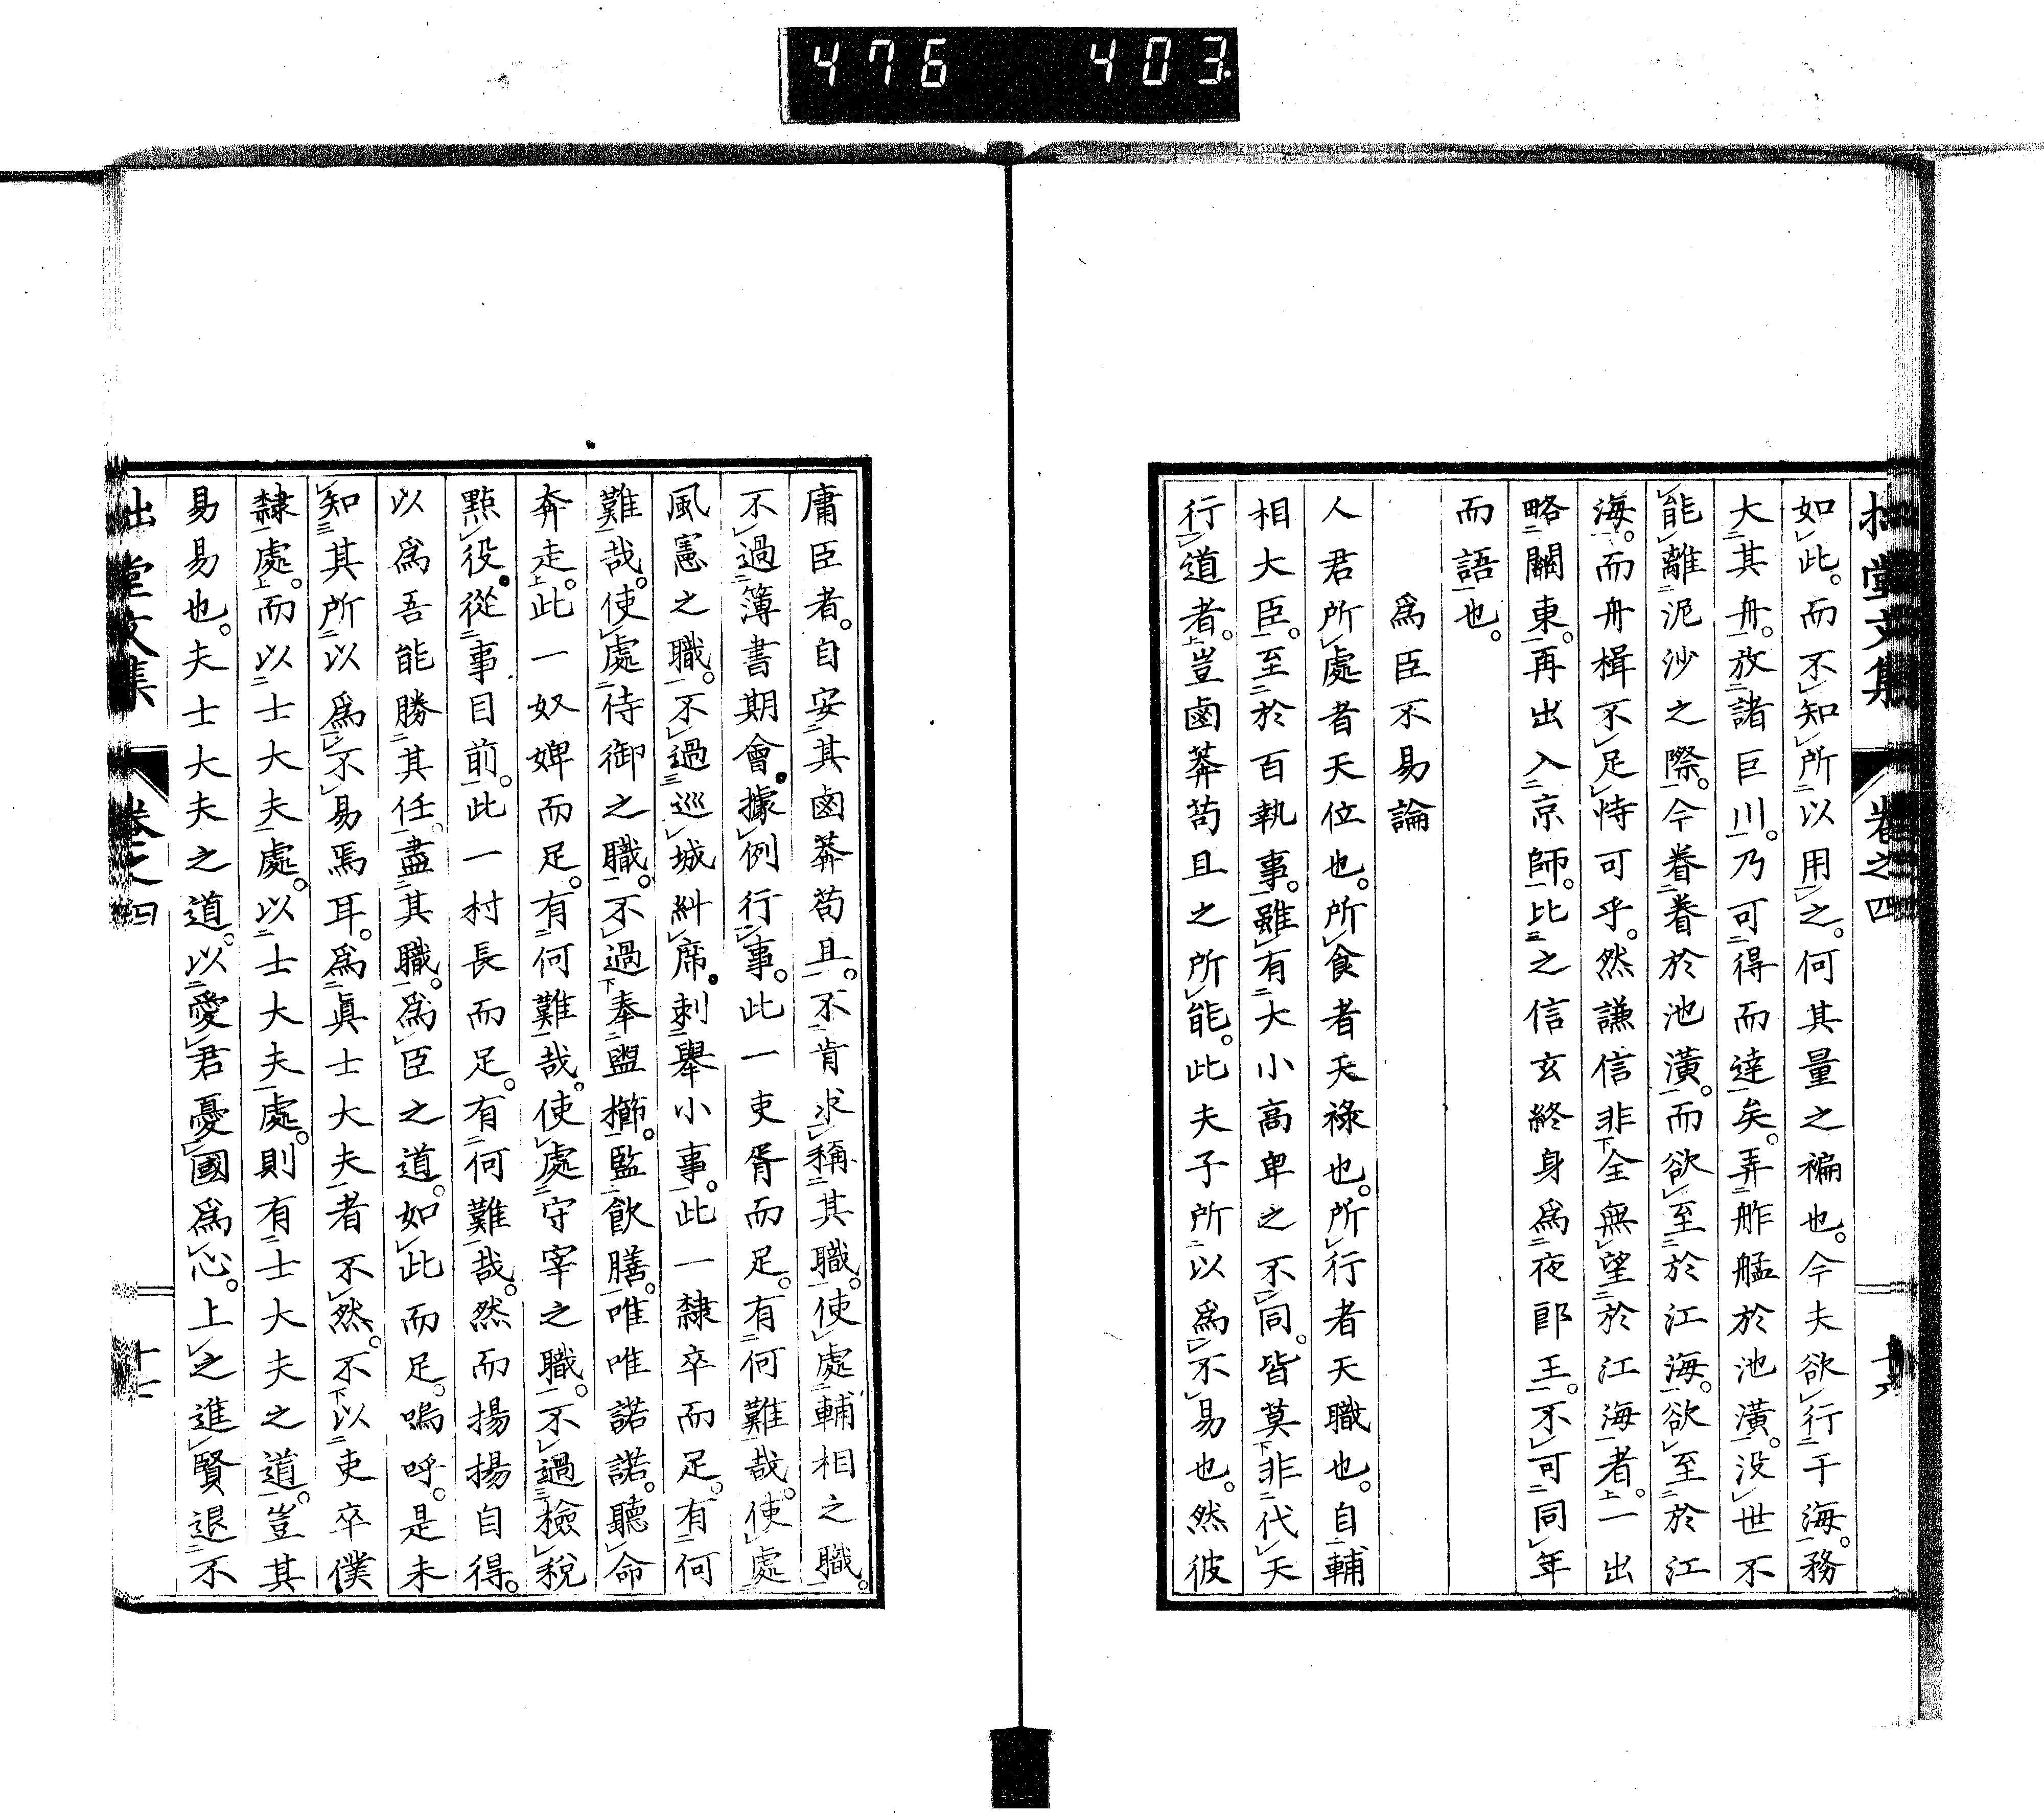 476 403
拙堂文集 卷之四 十六
如此。而不知所以用之。何其量之褊也。今夫欲行于海。務
大其舟。放諸巨川。乃可得而達矣。弄舴艋於池潢。没世不
能離泥沙之際。今眷眷於池潢。而欲至於江海。欲至於江
海。而舟楫不足恃可乎。然謙信非全無望於江海者。一出
略關東。再出入京師。比之信玄終身爲夜郎王。不可同年
而語也。
爲臣不易論
人君所處者天位也。所食者天祿也。所行者天職也。自輔
相大臣。至於百執事。雖有大小高卑之不同。皆莫非代天
行道者。豈鹵莽苟且之所能。此夫子所以爲不易也。然彼
庸臣者。自安其鹵莽苟且。不肯求稱其職。使處輔相之職。
不過簿書期會。據例行事。此一吏胥而足。有何難哉。使處
風憲之職。不過巡城糾席。刺舉小事。此一隸卒而足。有何
難哉。使處侍御之職。不過奉盥櫛。監飲膳。唯唯諾諾。聽命
奔走。此一奴婢而足。有何難哉。使處守宰之職。不過檢稅
點役。從事目前。此一村長而足。有何難哉。然而揚揚自得。
以爲吾能勝其任。盡其職。爲臣之道。如此而足。嗚呼。是未
知其所以爲不易焉耳。爲眞士大夫者不然。不以吏卒僕
隸處。而以士大夫處。以士大夫處。則有士大夫之道。豈其
易易也。夫士大夫之道。以愛君憂國爲心。上之進賢退不
拙堂文集 卷之四